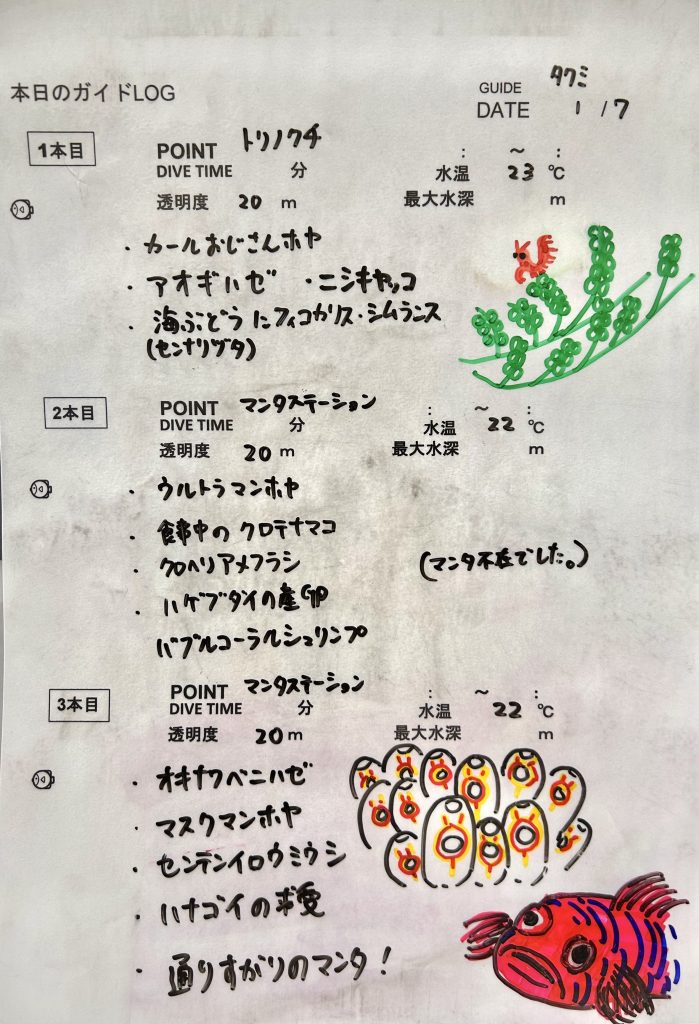 本日のガイドLOG
GUIDE タクミ
DATE 1/7
1本目
POINT トリノクチ
DIVE TIME 分 : ～ :
水温 23 ℃
透明度 20 m 最大水深 m
・カールおじさんホヤ
・アオギハゼ ・ニシキヤッコ
・海ぶどうにフィコカリス・シムランス
(センナリヅタ)
2本目
POINT マンタステーション
DIVE TIME 分 : ～ :
水温 22 ℃
透明度 20 m 最大水深 m
・ウルトラマンホヤ
・食事中のクロテナマコ
・クロヘリアメフラシ
(マンタ不在でした。)
・ハゲブダイの産卵
バブルコーラルシュリンプ
3本目
POINT マンタステーション
DIVE TIME 分 : ～ :
水温 22 ℃
透明度 20 m 最大水深 m
・オキナワベニハゼ
・マスクマンホヤ
・センテンイロウミウシ
・ハナゴイの求愛
・通りすがりのマンタ!